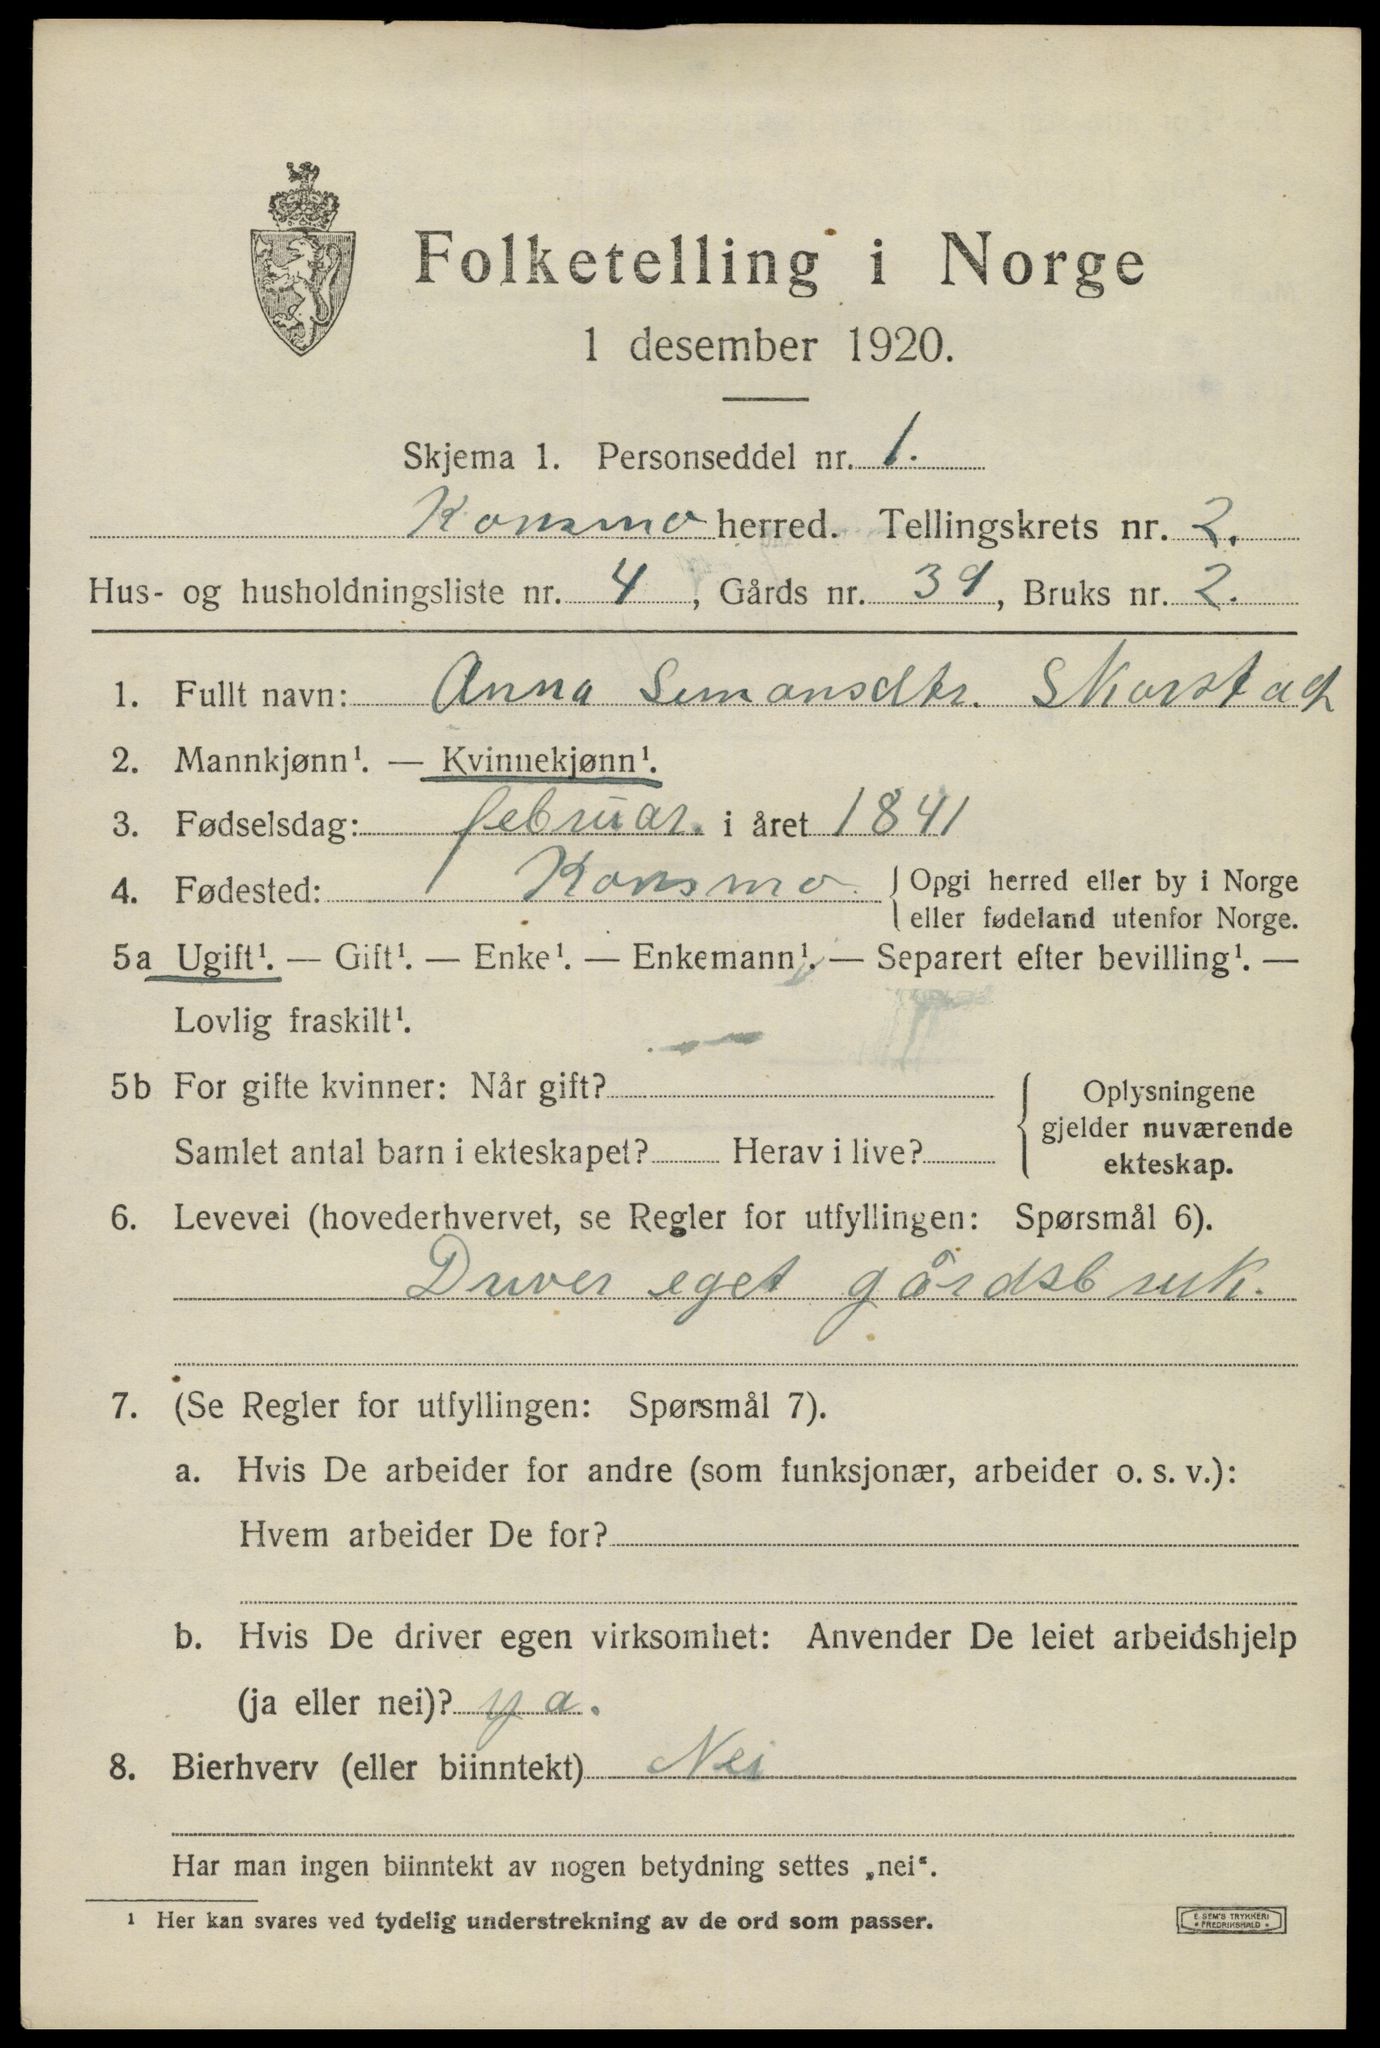 Folketelling i Norge
1 desember 1920.
Skjema 1. Personseddel nr. 1.
Konsmo herred. Tellingskrets nr. 2.
Hus- og husholdningsliste nr. 4, Gårds nr. 39, Bruks nr. 2.
1. Fullt navn: Anna Simonsdtr. Skorstad
2. Mannkjønn¹. — Kvinnekjønn¹.
3. Fødselsdag: februar. i året 1841
4. Fødested: Konsmo. { Opgi herred eller by i Norge
eller fødeland utenfor Norge.
5a Ugift¹. — Gift¹. — Enke¹. — Enkemann¹. — Separert efter bevilling¹. —
Lovlig fraskilt¹.
5b For gifte kvinner: Når gift?
Samlet antal barn i ekteskapet? Herav i live?
Oplysningene
gjelder nuværende
ekteskap.
6. Levevei (hovederhvervet, se Regler for utfyllingen: Spørsmål 6).
Driver eget gårdsbruk.
7. (Se Regler for utfyllingen: Spørsmål 7).
a. Hvis De arbeider for andre (som funksjonær, arbeider o. s. v.):
Hvem arbeider De for?
b. Hvis De driver egen virksomhet: Anvender De leiet arbeidshjelp
(ja eller nei)? ya.
8. Bierhverv (eller biinntekt) Nei
Har man ingen biinntekt av nogen betydning settes „nei“.
¹ Her kan svares ved tydelig understrekning av de ord som passer.
E. SEM'S TRYKKERI
FREDRIKSHALD